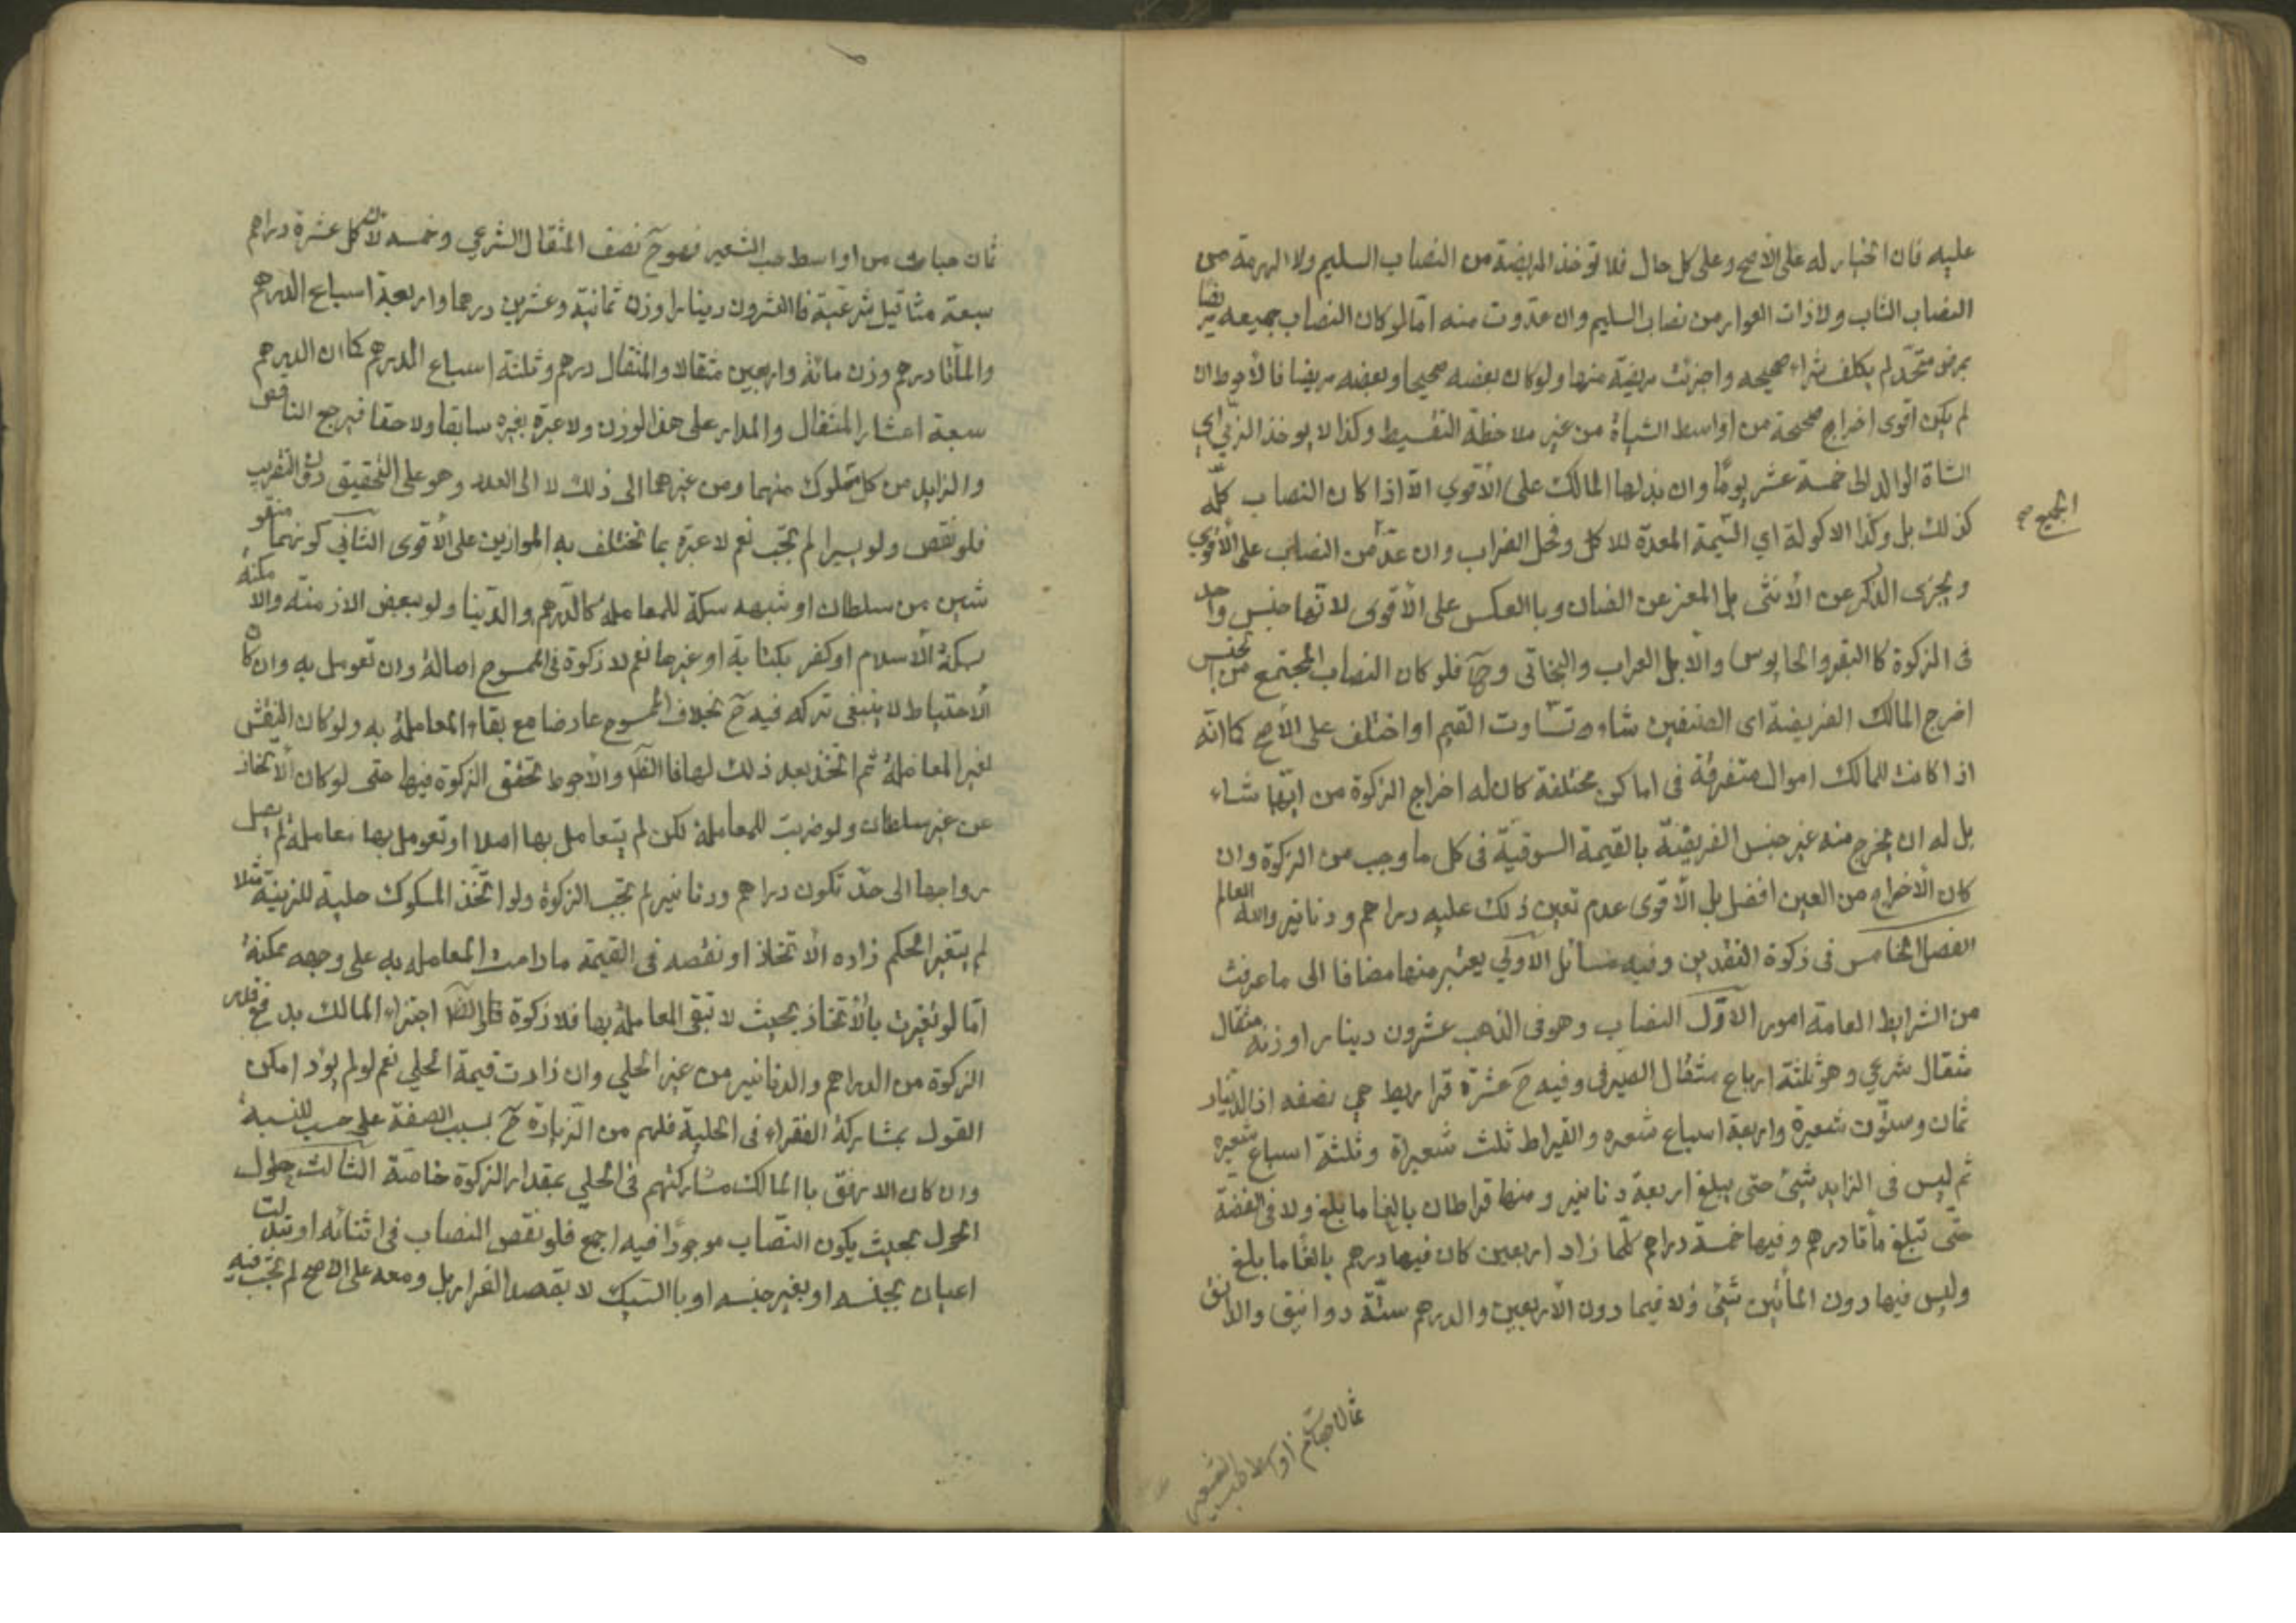 عليه فان الخيار له على الأصح وعلى كل حال فلا تؤخذ المريضة من النصاب السليم ولا الهرمة من
النصاب الشاب ولا ذات العوار من نصاب السليم وان عدّوت منه امّا لو كان النصاب جميعه
بمرض متحد لم يكلف شراء صحيحه واجزئت مريضة منها ولو كان بعضه صحيحا وبعضه مريضا فالأحوط ان
لم يكن اقوى اخراج صحيحة من اواسط الشياة من غير ملاحظة التقسيط وكذا لا يوخذ الربّي اي
الشاة الوالد الى خمسة عشر يومًا وان بذلها المالك على الأقوي الّا اذا كان النصاب كلّه
كذلك بل وكذا الاكولة اي السّيمة المعدة للاكل وفحل الضراب وان عدّ من النصاب على الأقوي
الجميع صح
ويجزى الذكر عن الأنثى بل المعز عن الضان وبا العكس على الأقوى لانها جنس واحد
فى الزكوة كا البقر والجاموس والأبل العراب والبخاتى وحٓ فلو كان النصاب المجتمع من الجنس
اخرج المالك الفريضة اى الصنفين شاء تساوت القيم او اختلف على الأصح كما انّه
اذا كانت للمالك اموال متفرقة فى اماكن مختلفة كان له اخراج الزكوة من ايّها شاء
بل له ان يخرج منه غير جنس الفريضة بالقيمة السوقيّة فى كل ما وجب من الزكوة وان
كان الأخراج من العين افضل بل الأقوى عدم تعين ذلك عليه دراهم ودنانير والله العالم
الفصل الخامس فى زكوة النقدين وفيه مسائل الأولي يعتبر منها مضافا الى ما عرفت
من الشرايط العامة امور الأوّل النصاب وهو فى الذهب عشرون دينارا وزنه مثقال
مثقال شرعي وهو ثلثة ارباع مثقال الصيرفى وفيه حٓ عشرة قراريط هي نصفه اذ الدينار
ثمان وستّون شعيرة واربعة اسباع شعيره والقيراط ثلث شعيراة وثلثة اسباع شعيره
ثم ليس فى الزايد شيئ حتى يبلغ اربعة دنانير ومنها قراطان بالغا ما بلغ ولا فى الفضة
حتّى تبلغ مأتا درهم وفيها خمسة دراهم كلّما زاد اربعين كان فيها درهم بالغًا ما بلغ
وليس فيها دون المأتين شئى ولا فيما دون الأربعين والدرهم ستّة دوانيق والدانق
ثمان حبات من اواسط حب الشعير
ثمان حبات من اواسط حب الشعير فهو حٓ نصف المثقال الشرعي وخمسه لان كل عشرة دراهم
سبعة مثاقيل شرعيّة فا العشرون دينارا وزن ثمانية وعشرين درهما واربعة اسباع الدرهم
والمأتا درهم وزن مائة واربعين مثقالا والمثقال درهم وثلثة اسباع الدرهم كما ان الدرهم
سبعة اعشار المثقال والمدار على هذا الوزن ولا عبرة بغيره سابقا ولا حقا فيرجع الناقص
والزايد من كل مملوك منهما ومن غيرهما الى ذلك لا الى العدد وهو على التحقيق دون التقريب
فلو نقص ولو يسيرا لم تجب نعم لا عبرة بما تختلف به الموازين على الأقوى الثاني كونهما منقو
شين من سلطان او شبهه سكة للمعاملة كالدرهم والدينا ولو ببعض الازمنة والا مكنة
بسكة الأسلام او كفر بكتابة او غيرها نعم لا زكوة فى الممسوح اصالة وان تعومل به وان كان
الأحتياط لا ينبغى تركه فيه حٓ بخلاف الممسوح عارضا مع بقاء المعاملة به ولو كان النقش
لغير المعاملة ثم اتخذ بعد ذلك لها فا الظٓ والأحوط تحقق الزكوة فيها حتى لو كان الأتخاذ
من غير سلطان ولو ضربت للمعاملة لكن لم يتعامل بها اصلا او تعومل بها معاملة لم يصل
رواجها الى حدّ تكون دراهم ودنانير لم تجب الزكوة ولو اتخذ المسكوك حلية للزينة مثلا
لم يتغير الحكم زاده الأتخاذ او نقصه فى القيمة ما دامت المعامله به على وجهه ممكنة
امّا لو تغيرت بالأتخاذ بحيث لا تبقى المعاملة بها فلا زكوة اجتزاء المالك
الزكوة من الدراهم والدنانير من غير الحلي وان زادت قيمة الحلي نعم لو لم يؤد امكن
القول بمشاركة الفقراء فى الحلية فلهم من الزيادة حٓ بسبب الصفة على حسب النسبة
وان كان الارفق با المالك مشاركتهم فى الحلي بمقدار الزكوة خاصّة الثالث حلول
الحول بحيث يكون النصّاب موجودًا فيه اجمع فلو نقص النصاب فى اثنائه او تبدلت
اعيان بجنسه او بغير جنسه او با السّبك لا بقصد الفرار بل ومعه على الاصح لم تجب فيه